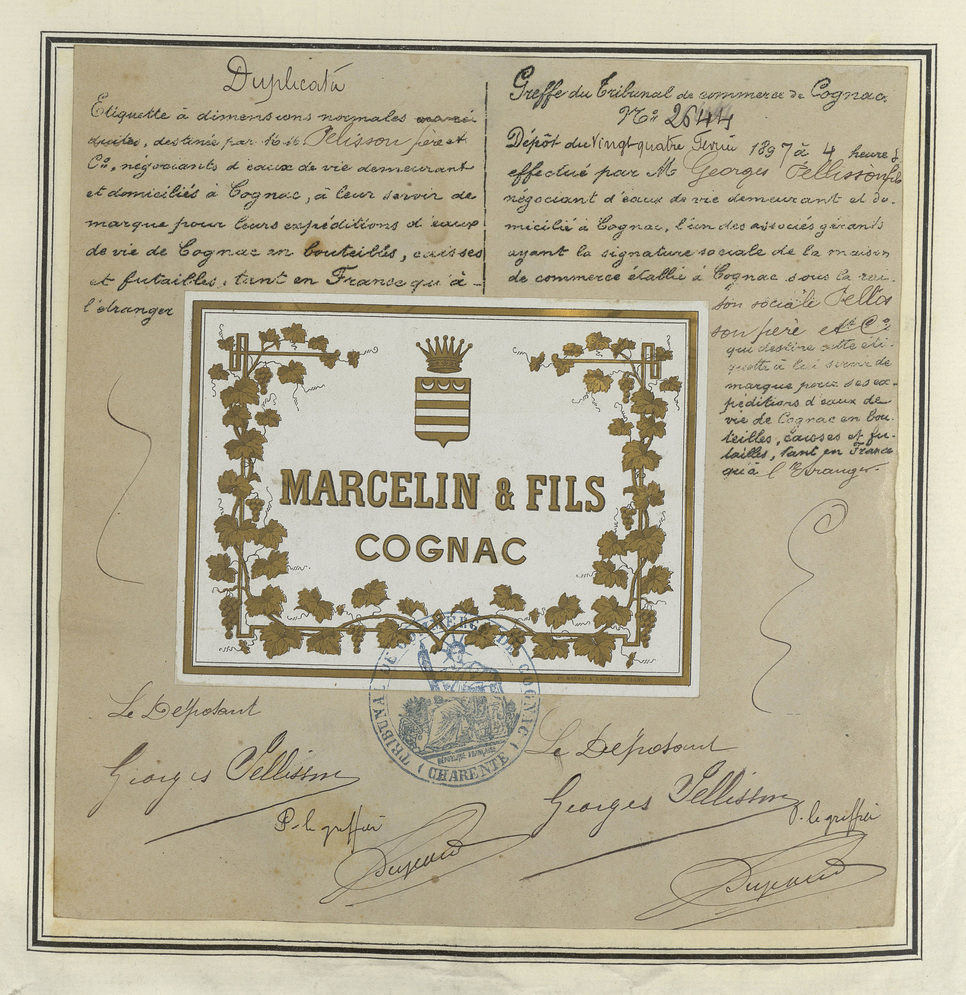 Duplicata
Etiquette à dimensions normales
destinée par M. Pellisson père et
Cie, négociants d'eaux de vie demeurant
et domiciliés à Cognac, à leur servir de
marque pour leurs expéditions d'eaux
de vie de Cognac en bouteilles, caisses
et futailles, tant en France qu'à
l'étranger
Greffe du Tribunal de commerce de Cognac.
No 2644
Dépôt du Vingt-quatre 1897 à 4 heures
effectué par M Georges Pellisson fils
négociant d'eaux de vie demeurant et do-
micilié à Cognac, l'un des associés gérants
ayant la signature sociale de la maison
de commerce établie à Cognac sous la rai-
son sociale Pellis
son père et Cie
qui destine cette éti-
quette à lui servir de
marque pour ses ex-
péditions d'eaux de
vie de Cognac en bou-
teilles, caisses et fu-
tailles, tant en France
qu'à l'Etranger.
MARCELIN & FILS
COGNAC
TRIBUNAL DE COMMERCE DE COGNAC
RÉPUBLIQUE FRANÇAISE
(CHARENTE)
Le Déposant
Georges Pellisson
P. le greffier
Le Déposant
Georges Pellisson
P. le greffier